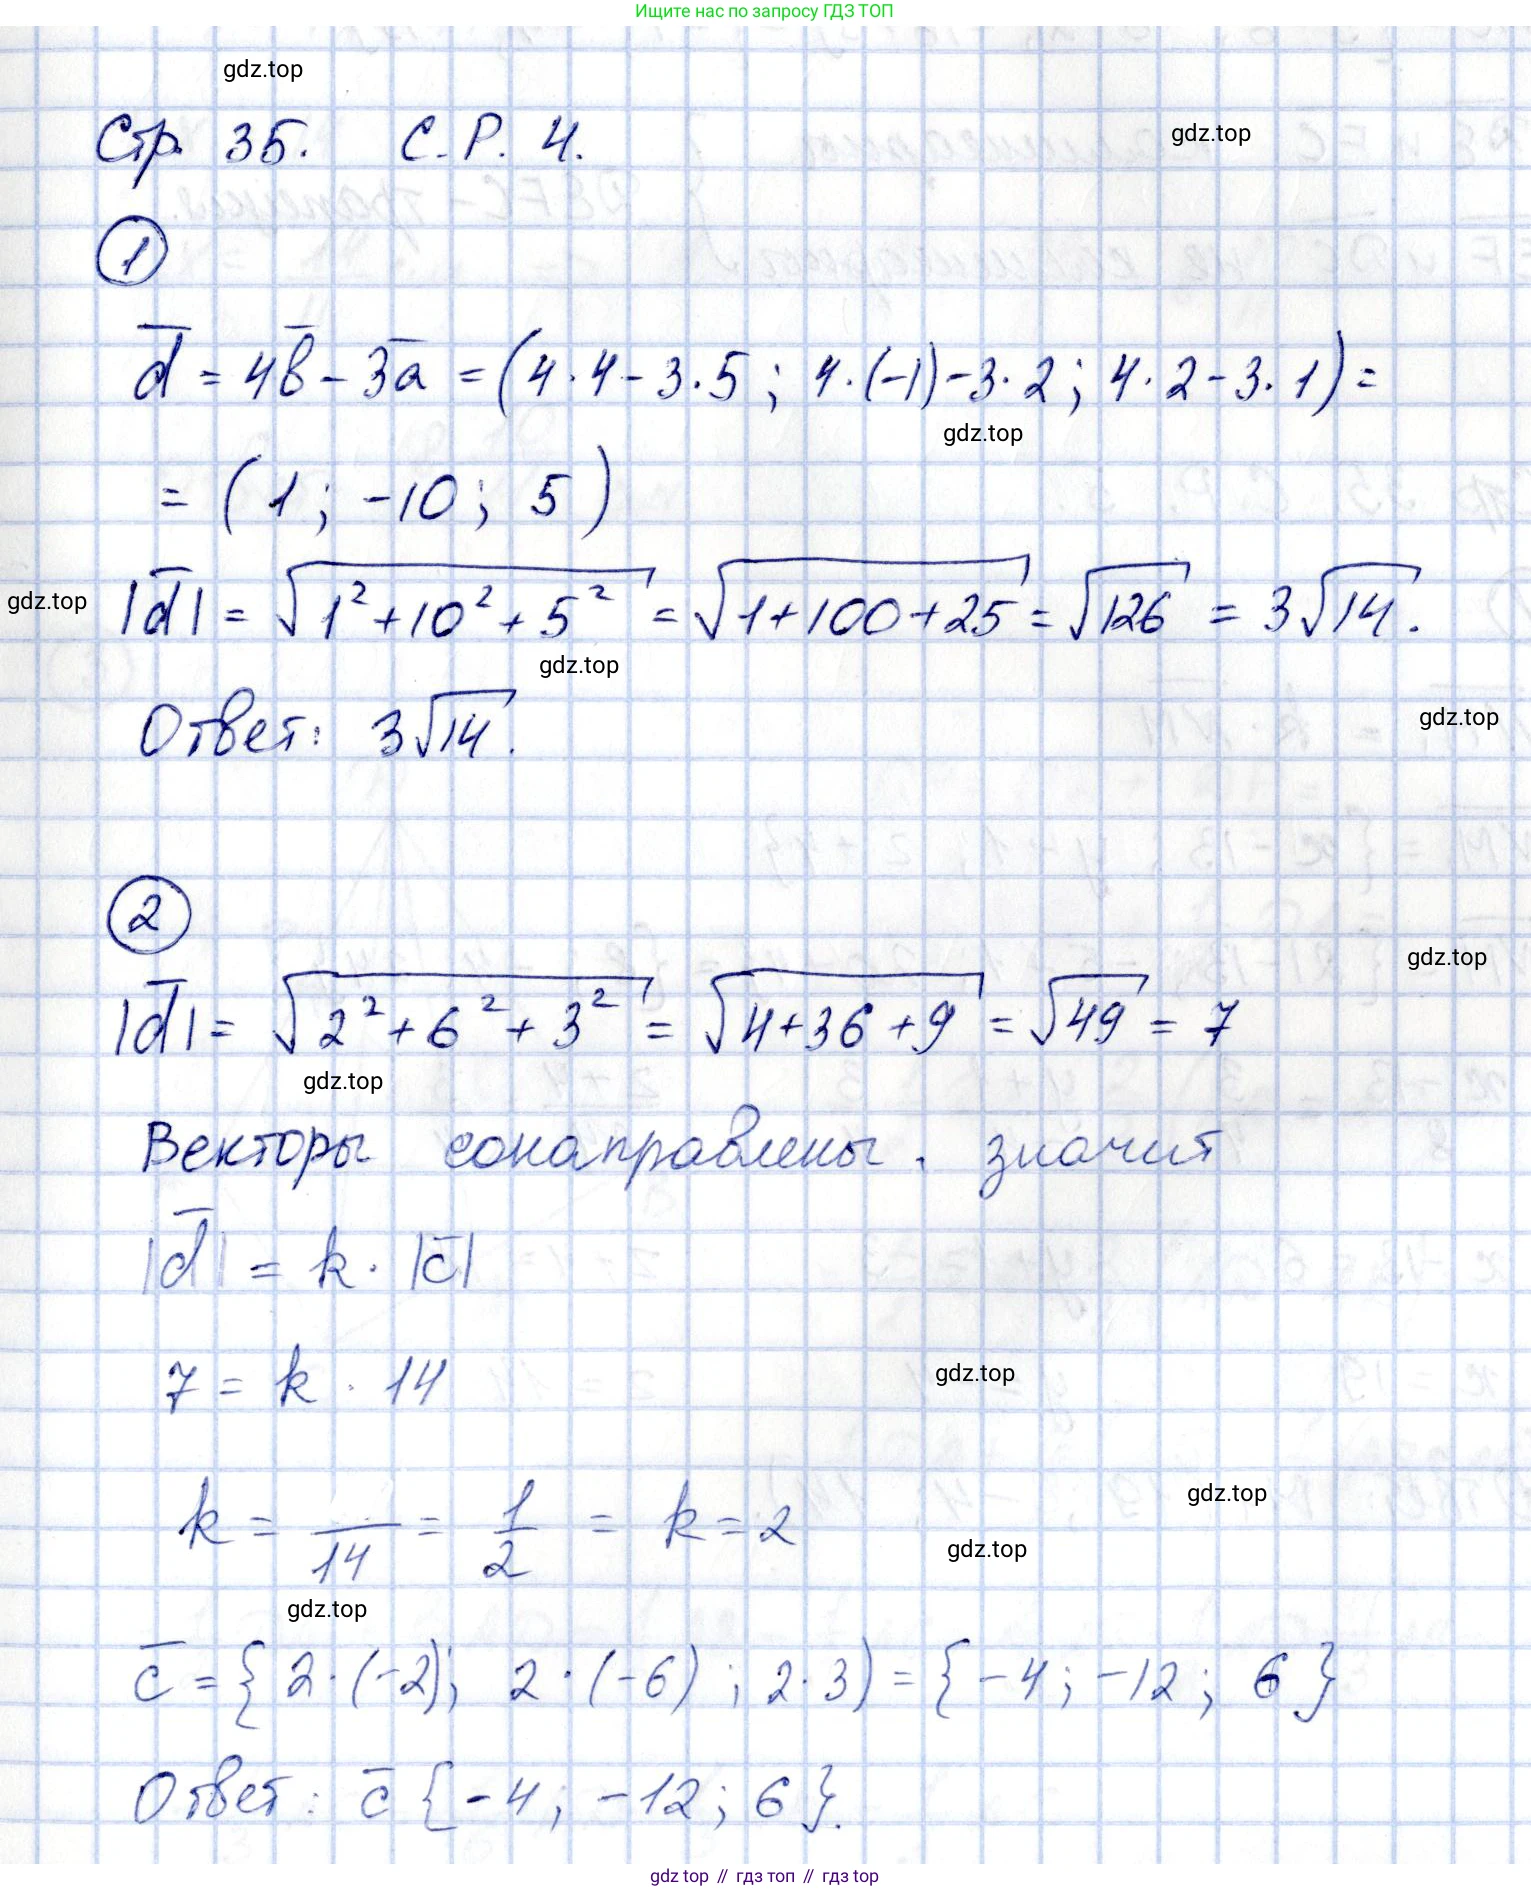 Ищите нас по запросу ГДЗ ТОП
gdz.top
Стр. 35. С.Р. 4.
gdz.top
1
d̅ = 4b̅ - 3a̅ = (4·4-3·5; 4·(-1)-3·2; 4·2-3·1) =
gdz.top
= (1; -10; 5)
gdz.top
|d̅| = √(1²+10²+5²) = √(1+100+25) = √126 = 3√14.
gdz.top
Ответ: 3√14.
gdz.top
2
gdz.top
|d̅| = √(2²+6²+3²) = √(4+36+9) = √49 = 7
gdz.top
Векторы сонаправлены, значит
|d̅| = k · |c̅|
7 = k · 14
gdz.top
gdz.top
k = /14 = 1/2 = k = 2
gdz.top
gdz.top
c̅ = {2·(-2); 2·(-6); 2·3) = {-4; -12; 6}
Ответ: c̅ {-4; -12; 6}.
gdz top // гдз топ // gdz top